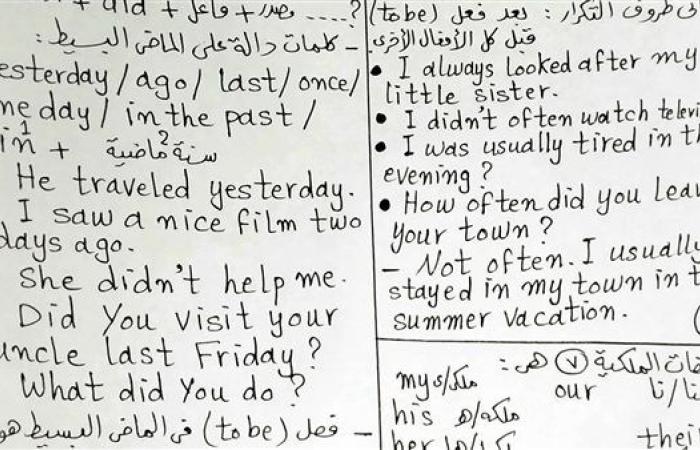 ؟.... مصدر + فاعل + did +
- كلمات دالة على الماضي البسيط :
esterday / ago / last / once /
me day / in the past /
in¹ + سنة ماضية²
He traveled yesterday.
I saw a nice film two
days ago.
She didn't help me.
Did You visit your
uncle last Friday?
What did You do ?
- فعل (to be) في الماضي البسيط هو
ظروف التكرار : بعد فعل (to be)
قبل كل الأفعال الأخرى
• I always looked after my
little sister.
• I didn't often watch televi
• I was usually tired in th
evening?
• How often did you lea
your town?
- Not often. I usually
stayed in my town in t
summer vacation.
الملكية (٧) هي :
my ملكي/ي our نا/نا
his ملكه/ه
her ها thei